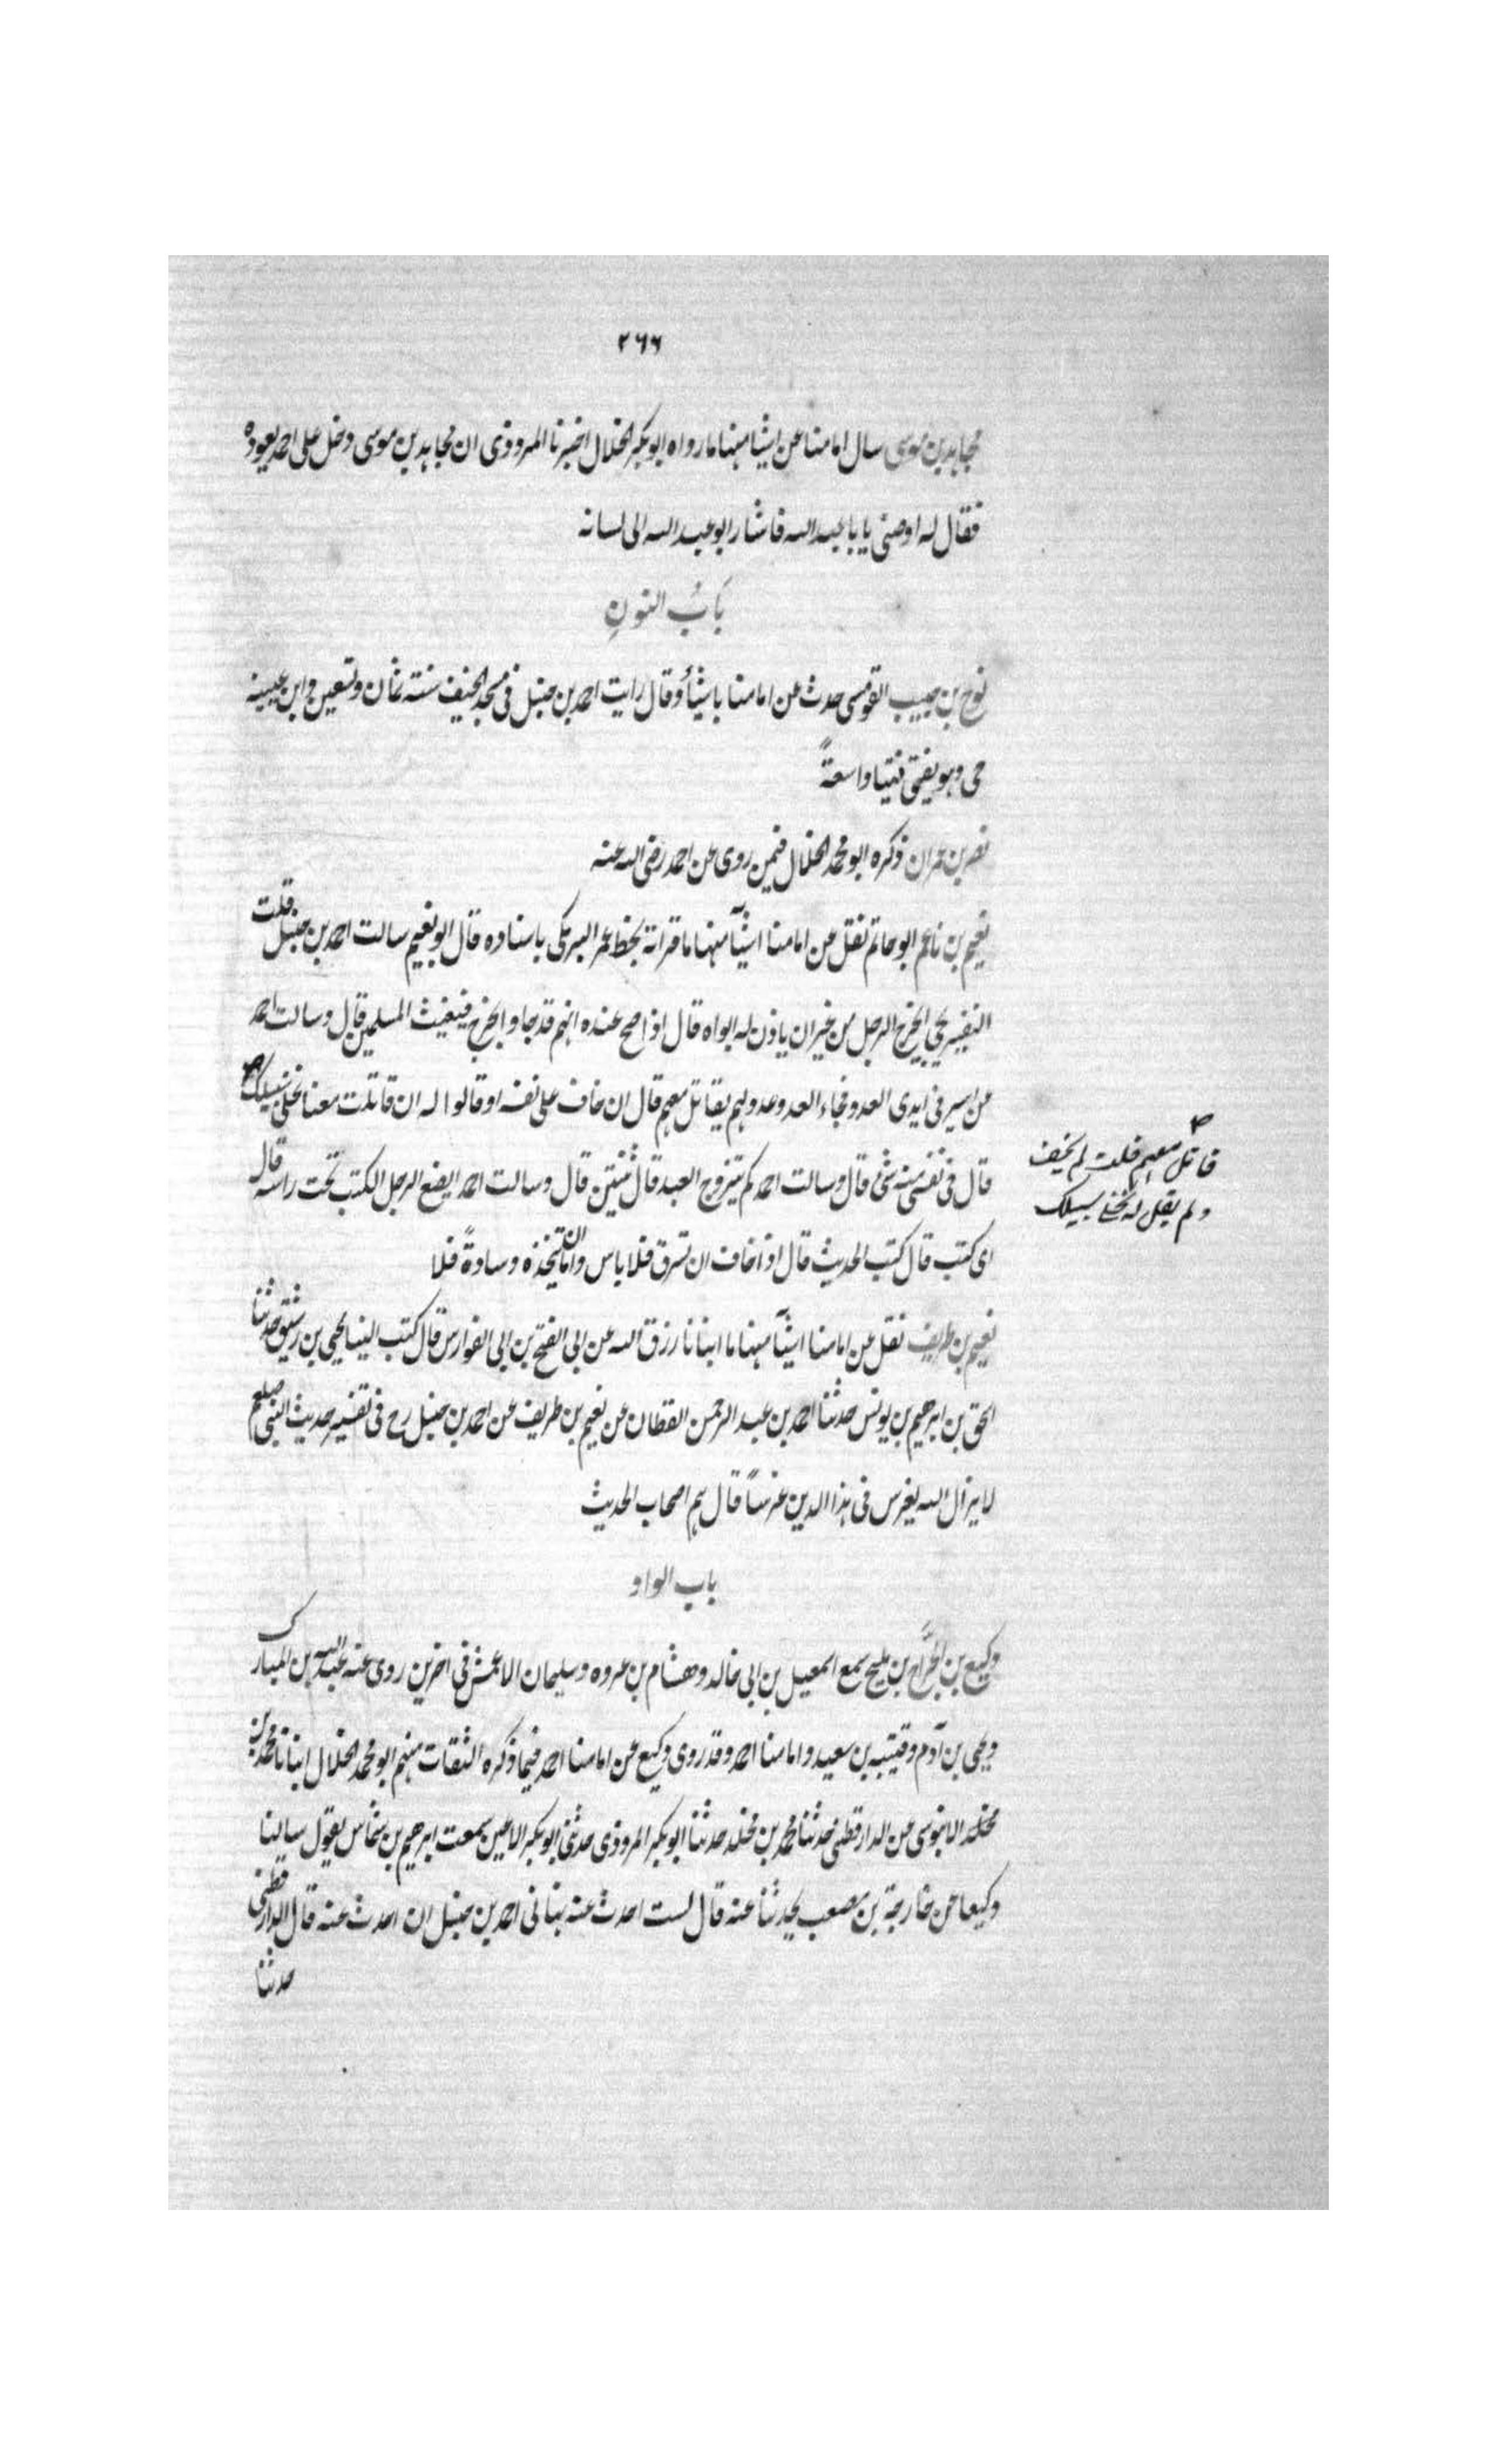 ٢٦٦
مجاهد بن موسى سال امامنا عن اشيا منها ما رواه ابو بكر الخلال اخبرنا المروذى ان مجاهد بن موسى دخل على احمد يعوده
فقال له اوصنى يا با عبد الله فاشار ابو عبد الله الى لسانه
بَابُ النونِ
نوح بن حبيب القومسى حدث عن امامنا باشيأ وقال رايت احمد بن حنبل فى مسجد الخيف سنته ثمان وتسعين وابن عيينه
حى وهو يفتى فتيا واسعةً
نصر بن حمران ذكره ابو محمد الخلال فيمن روى عن احمد رضى الله عنه
نعيم بن ناعم ابو حاتم نقل عن امامنا اشيآ منها ما قراته بخط عمر البرمكى باسناده قال ابو نعيم سالت احمد بن حنبل قلت
النفير يجى ايخرج الرجل من غير ان ياذن له ابواه قال اذا صح عنده انهم قد جاوا يخرج فيغيث المسلمين قال وسالت احمد
عن اسير فى ايدى العدو فجاء العدو عدو لهم يقاتل معهم قال ان خاف على نفسه او قالوا له ان قاتلت معنا نخلى سبيلك
قاتل معهم قلت لم يخف
ولم يقل له نخلى سبيلك
قال فى نفسى منه شئ قال وسالت احمد كم يتزوج العبد قال ثنتين قال وسالت احمد ايضع الرجل الكتب تحت راسه قال
اى كتب قال كتب الحديث قال اذا خاف ان تسرق فلا باس واما ان يتخذه وسادةً فلا
نعيم بن طريف نقل عن امامنا اشيآ منها ما انبانا رزق الله عن ابى الفتح بن ابى الفوارس قال كتب الينا يحيى بن رشيق حدثنا
اسحق بن ابرهيم بن يونس حدثنا احمد بن عبد الرحمن القطان عن نعيم بن طريف عن احمد بن حنبل رح فى تفسير حديث النبى صلعم
لا يزال الله يغرس فى هذا الدين غرساً قال هم اصحاب الحديث
باب الواو
وكيع بن الجَرَّاح بن مليح سمع اسمعيل بن ابى خالد وهشام بن عروه وسليمان الاعمش فى اخرين روى عنه عبد الله بن المبارك
ويحيى بن آدم وقتيبه بن سعيد وامامنا احمد وقد روى وكيع عن امامنا احمد فيما ذكره الثقات منهم ابو محمد الخلال انبانا محمد بن
مخلد الابنوسى عن الدارقطنى حدثنا محمد بن مخلد حدثنا ابو بكر المروذى حدثنى ابو بكر الاعين سمعت ابرهيم بن شماس يقول سالنا
وكيعا عن خارجة بن مصعب يحدثنا عنه قال لست احدث عنه نهانى احمد بن حنبل ان احدث عنه قال الدارقطنى
حدثنا